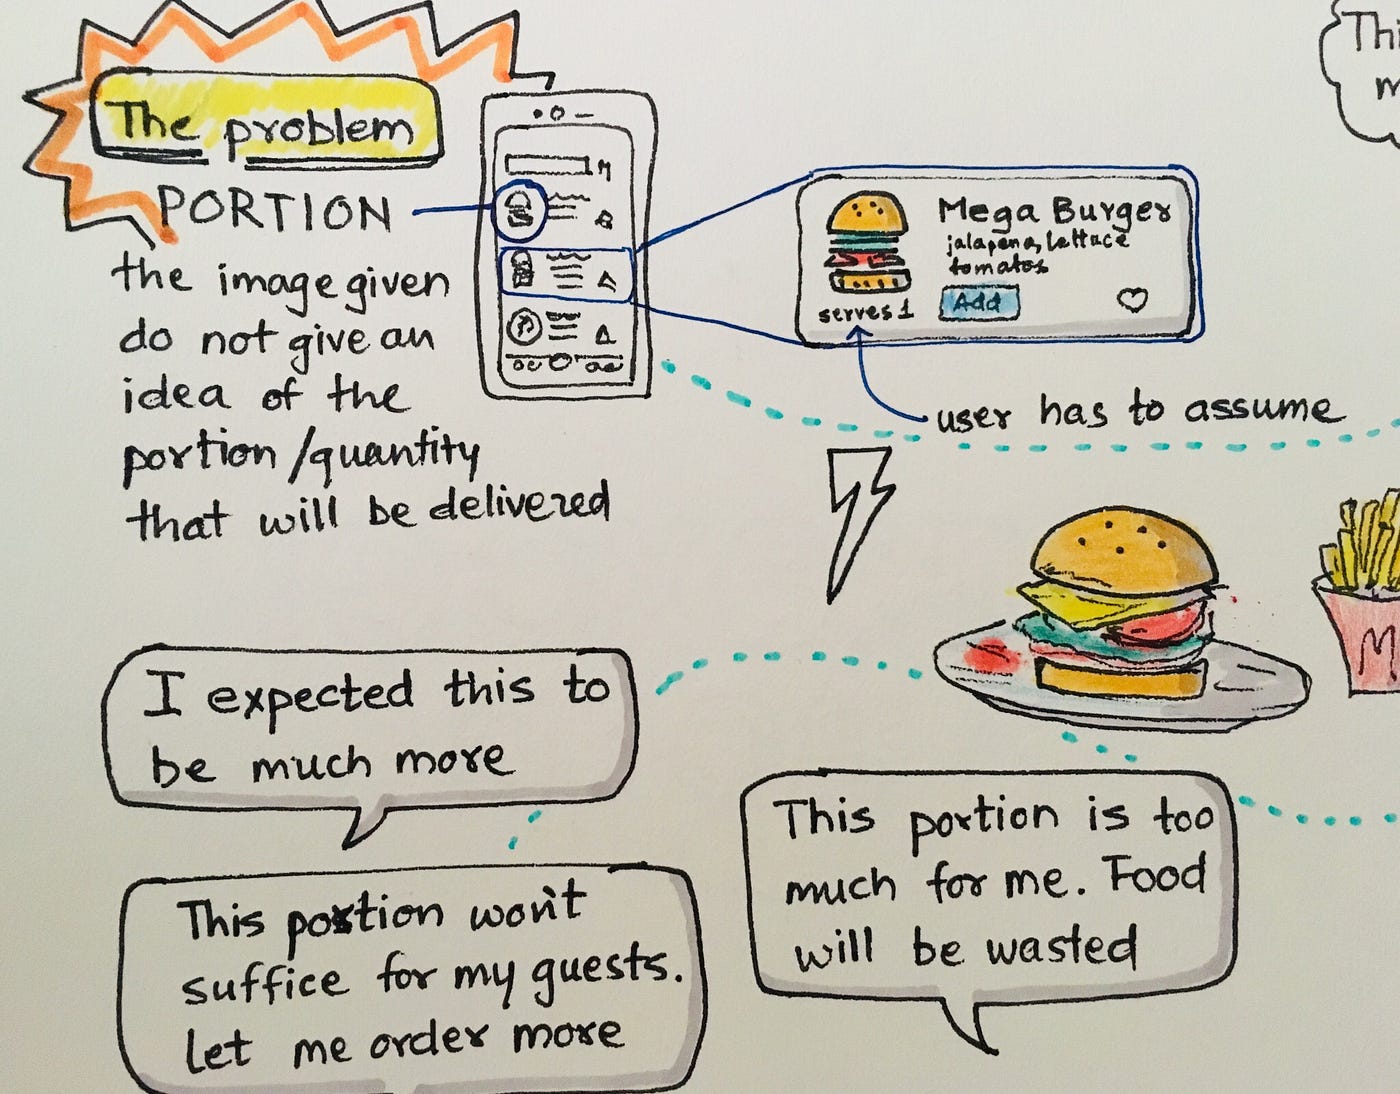 The problem
PORTION
the image given
do not give an
idea of the
portion/quantity
that will be delivered
Mega Burger
jalapeno, lettuce
tomatos
Add
serves 1
user has to assume
Thi
m
M
I expected this to
be much more
This portion won't
suffice for my guests.
Let me order more
This portion is too
much for me. Food
will be wasted